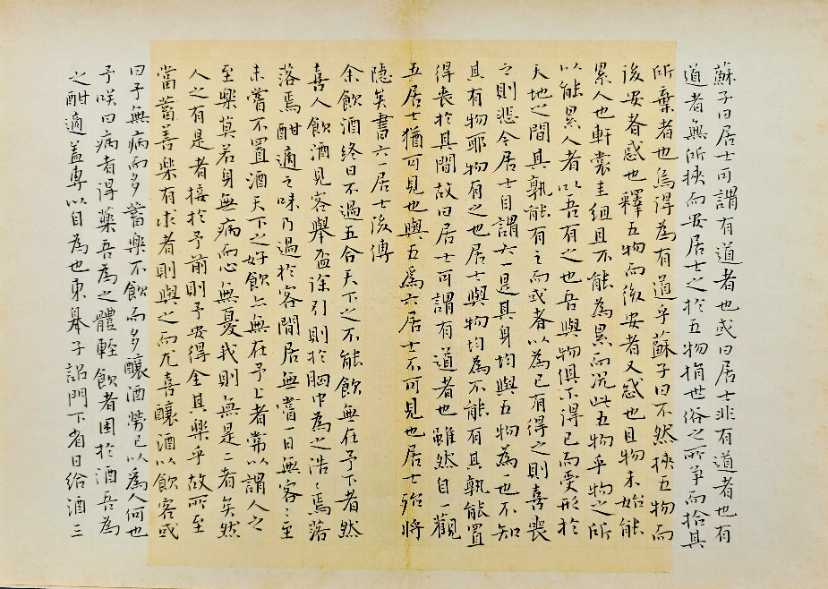 蘇子曰居士可謂有道者也或曰居士非有道者也有
道者無所挾而安居士之於五物捐世俗之所爭而拾其
所棄者也烏得為有道乎蘇子曰不然挾五物而
後安者惑也釋五物而後安者又惑也且物未始能
累人也軒裳圭組且不能為累而況此五物乎物之所
以能累人者以吾有之也吾與物俱不得已而受形於
天地之間其孰能有之而或者以為己有得之則喜喪
之則悲今居士自謂六一是其身均與五物為也不知
其有物耶物有之也居士與物均為不能有其孰能置
得喪於其間故曰居士可謂有道者也雖然自一觀
五居士猶可見也與五爲六居士不可見也居士殆將
隱矣書六一居士後傳
余飲酒終日不過五合天下之不能飲無在予下者然
喜人飲酒見客舉盃徐引則於胸中為之浩〻焉落
落焉酣適之味乃過於客閒居無嘗一日無客〻至
未嘗不置酒天下之好飲亦無在予上者常以謂人之
至樂莫若身無病而心無憂我則無是二者矣然
人之有是者接於予前則予安得全其樂乎故所至
當蓄善藥有求者則與之而尤喜釀酒以飲客或
曰子無病而多蓄藥不飲而多釀酒勞己以為人何也
予咲曰病者得藥吾為之體輕飲者困於酒吾為
之酣適蓋專以自為也東皋子詔門下省日給酒三